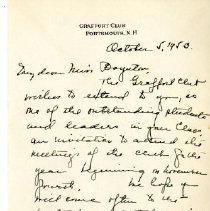 GRAFFORT CLUB
PORTSMOUTH, N.H.
October 5, 1950.
My dear Miss Boynton,
The Graffort Club
wishes to extend to you, as
one of the outstanding students
and leaders in your class,
an invitation to attend the
meetings of the club for the
year beginning in November
We hope you
will come often to the